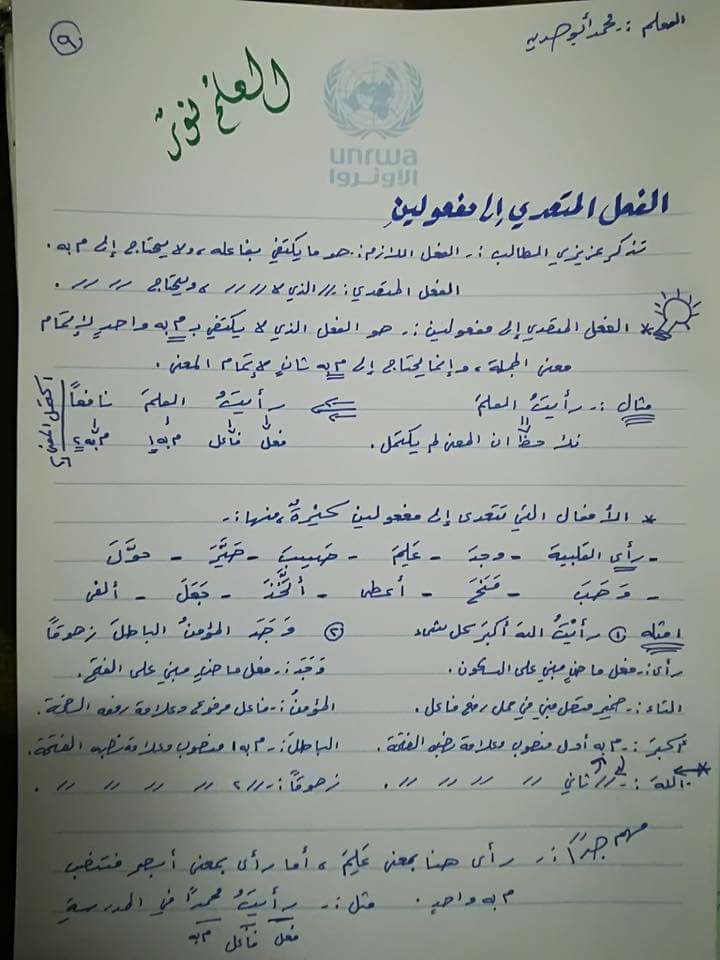 المعلم :- محمد أبو صدية
٩
العلم نور
unrwa
الاونروا
الفعل المتعدي إلى مفعولين
تذكر عزيزي الطالب :- الفعل اللازم :- هو ما يكتفي بفاعله ، ولا يحتاج إلى م به .
الفعل المتعدي :- // الذي لا // // ، ويحتاج // // // .
* الفعل المتعدي إلى مفعولين :- هو الفعل الذي لا يكتفي بـ م به واحدٍ لإتمام
معنى الجملة ، وإنما يحتاج إلى م به ثانٍ لإتمام المعنى .
مثال :- رأيتُ العلمَ ⇐ رأيتُ العلمَ نافعاً
نلاحظ ان المعنى لم يكتمل . فعل فاعل م به١ م به٢
اكتمل المعنى
* الأفعال التي تتعدى إلى مفعولين كثيرةٌ ، منها :-
- رأى القلبية - وجدَ - عَلِمَ - حَسِبَ - صَيَّرَ - حوَّلَ
- وَهَبَ - مَنَحَ - أعطى - اتَّخَذَ - جَعَلَ - ألفى
امثله ① رأيْتُ اللهَ أكبرَ كل شيء ② وَجَدَ المؤمنُ الباطلَ زهوقًا
رأى :- فعل ماضٍ مبني على السكون . وَجَدَ :- فعل ماضٍ مبني على الفتح .
التاء :- ضمير متصل مبني في محل رفع فاعل . المؤمنُ :- فاعل مرفوع وعلامة رفعه الضمة .
أكبرَ :- م به أول منصوب وعلامة نصبه الفتحة . الباطلَ :- م به١ منصوب وعلامة نصبه الفتحة .
* اللهَ :- // // ثاني // // // // . زهوقًا :- // ٢ // // // // .
مهم جدًا :- رأى هنا بمعنى عَلِمَ ، أما رأى بمعنى أبصر فتنصب
م به واحدٍ . مثل :- رأيتُ محمدًا في المدرسةِ
فعل فاعل م به